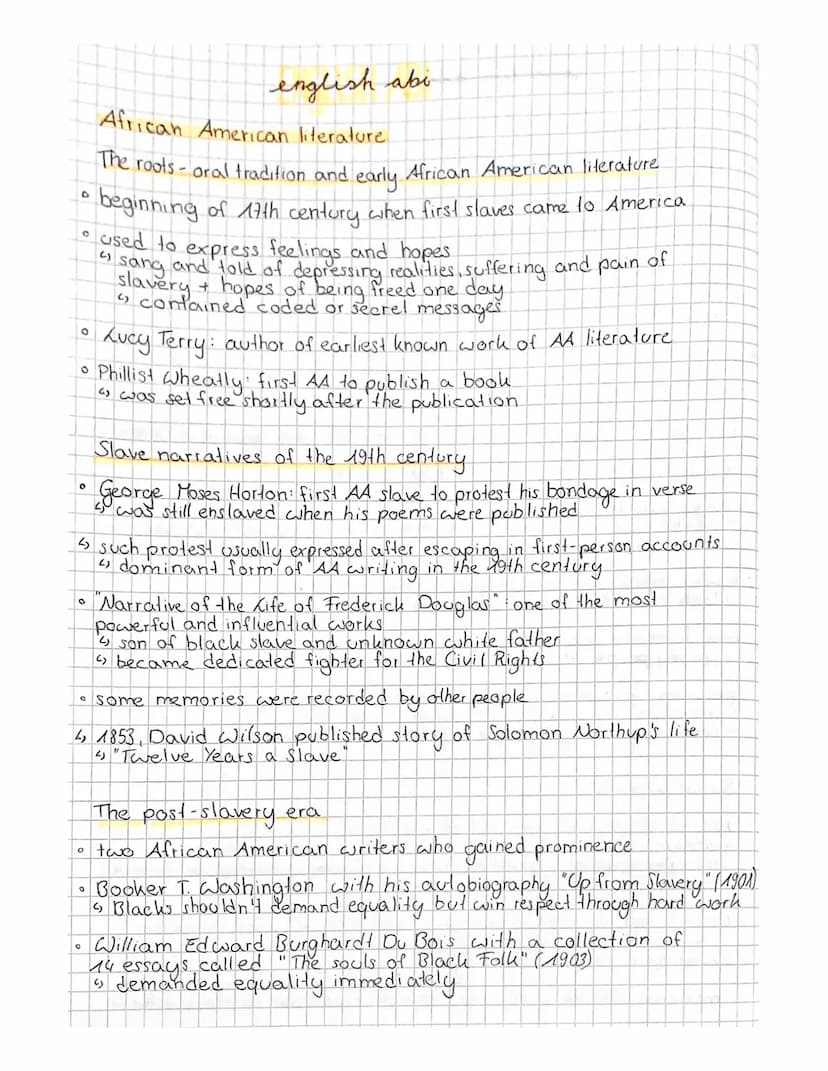 english abi
African American literature
The roots - oral tradition and early African American literature
° beginning of 17th century when first slaves came to America
° used to express feelings and hopes
↳ sang and told of depressing realities, suffering and pain of
slavery + hopes of being freed one day
↳ contained coded or secret messages
° Lucy Terry: author of earliest known work of AA literature
° Phillist Wheatly: first AA to publish a book
↳ was set free shortly after the publication
Slave narratives of the 19th century
° George Moses Horton: first AA slave to protest his bondage in verse
↳ was still enslaved when his poems were published
↳ such protest usually expressed after escaping in first-person accounts
↳ dominant form of AA writing in the 19th century
° "Narrative of the Life of Frederick Douglas": one of the most
powerful and influential works
↳ son of black slave and unknown white father
↳ became dedicated fighter for the Civil Rights
° some memories were recorded by other people
↳ 1853, David Wilson published story of Solomon Northup's life
↳ "Twelve Years a Slave"
The post-slavery era
° two African American writers who gained prominence
° Booker T. Washington with his autobiography "Up from Slavery" (1901)
↳ Blacks shouldn't demand equality but win respect through hard work
° William Edward Burghardt Du Bois with a collection of
14 essays called "The souls of Black Folk" (1903)
↳ demanded equality immediately